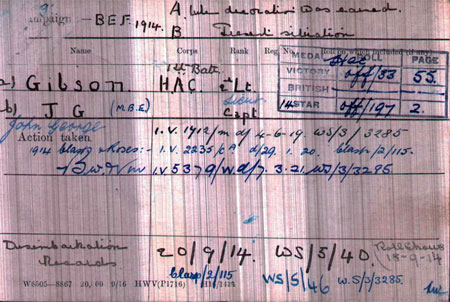 Campaign :- B.E.F. 1914. A. When decoration was earned.
B Present situation
Name Corps Rank Reg. No.
MEDAL PAGE
VICTORY off/83 55.
BRITISH
14 STAR off/197 2.
1st Batt
a) Gibson. HAC 2/Lt.
b) J G (M.B.E) Capt
John George
Action taken 1.V. 1912/md/ 4-6-19. WS/3/3285
1914 clasp & roses:- 1.V. 2235/6A d/29.1.20. clasp/2/115.
B.W. & V.M 1.V 5379/w.d/7.3.21. WS/3/3285.
Disembarkation 20/9/14. WS/5/40. Roll shows
Records 18-9-14
clasp/2/115 WS/5/46 W.S/3/3285.
W5505-8867 9/16 HWV(P1716)